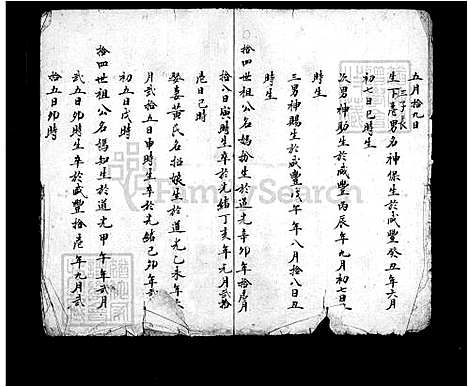 五月拾九日
生下三子長男名神保生於咸豐癸丑年六月
初七日巳時生
次男神助生於咸豐丙辰年九月初七日
時生
三男神賜生於咸豐戊午年八月拾八日丑
時生
拾四世祖公名媽扮生於道光辛卯年拾月
拾八日寅時生卒於光緒丁亥年元月貳拾
日巳時
娶妻黃氏名招娘生於道光乙未年
月貳拾五日申時生卒於光緒己卯年貳
初五日戌時
拾四世祖公名媽知生於道光甲午年貳月
貳五日卯時生卒於咸豐拾年九月貳
拾五日卯時
FamilySearch